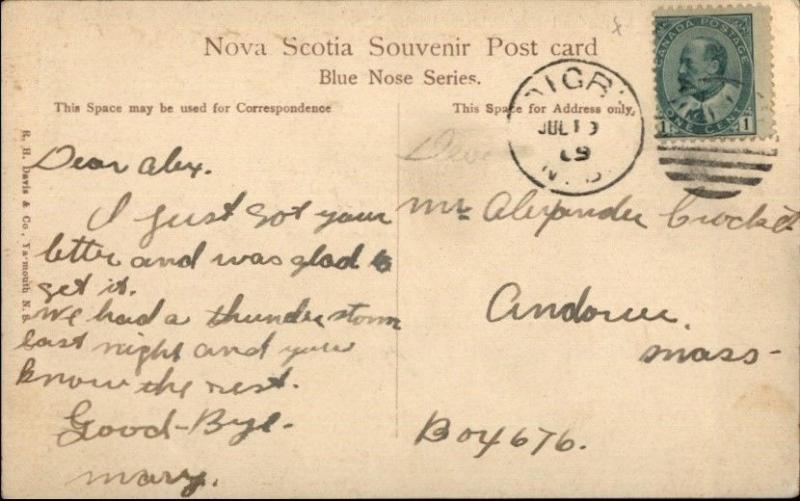 Nova Scotia Souvenir Post card
Blue Nose Series.
This Space may be used for Correspondence
This Space for Address only.
R. H. Davis & Co., Yarmouth N. S.
CANADA POSTAGE
1 ONE CENT 1
DIGBY
JUL 19
09
N.S.
Dear Alex.
I just got your
letter and was glad to
get it.
We had a thunder storm
last night and you
know the rest.
Good-Bye.
Mary.
Mr Alexander Crockett
Andover.
Mass-
Box 676.